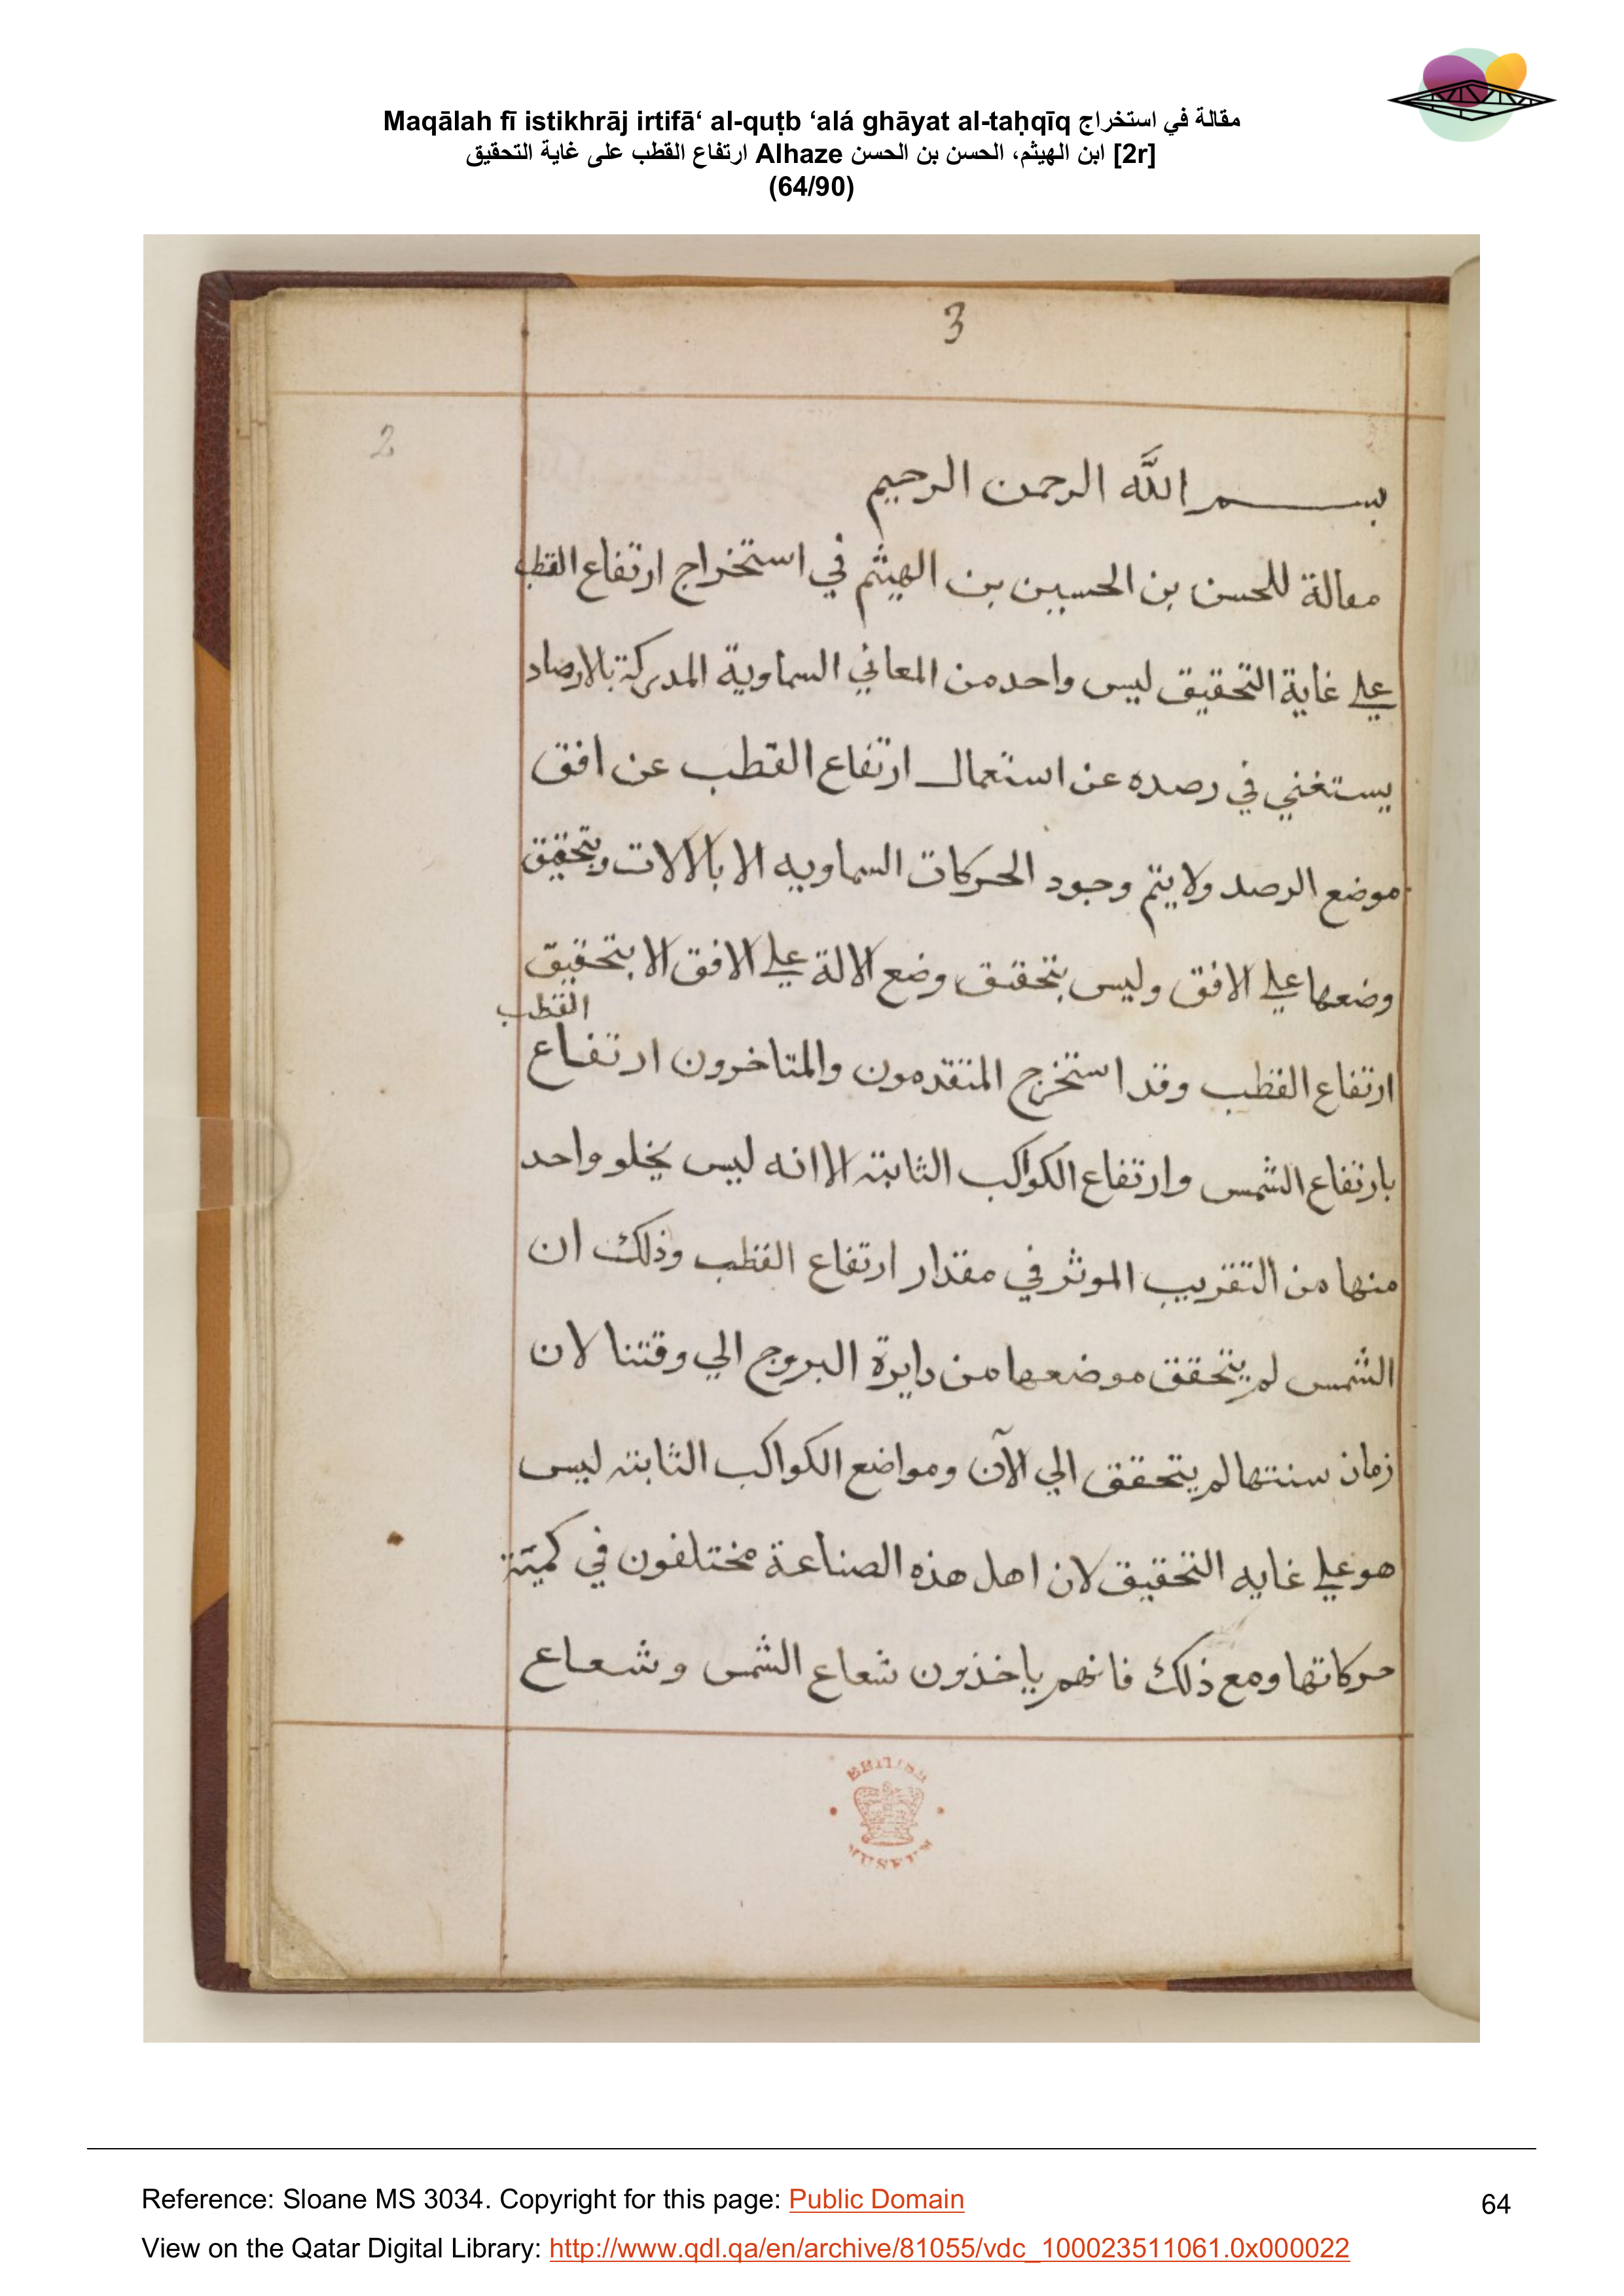 Maqālah fī istikhrāj irtifā‘ al-quṭb ‘alá ghāyat al-taḥqīq مقالة في استخراج
ارتفاع القطب على غاية التحقيق Alhaze ابن الهيثم، الحسن بن الحسن [2r]
(64/90)
3
2
بسم اللَّه الرحمن الرحيم
مقالة للحسن بن الحسين بن الهيثم في استخراج ارتفاع القطب
علي غاية التحقيق ليس واحد من المعاني السماوية المدركة بالارصاد
يستغني في رصده عن استعمال ارتفاع القطب عن افق
موضع الرصد ولا يتم وجود الحركات السماويه الا بالالات وبتحقيق
وضعها علي الافق وليس بتحقيق وضع الالة علي الافق الا بتحقيق
القطب
ارتفاع القطب وقد استخرج المتقدمون والمتاخرون ارتفاع
بارتفاع الشمس وارتفاع الكواكب الثابتة الا انه ليس يخلو واحد
منها من التقريب الموثر في مقدار ارتفاع القطب وذلك ان
الشمس لم يتحقق موضعها من دايرة البروج الي وقتنا لان
زمان سنتها لم يتحقق الي الآن ومواضع الكواكب الثابتة ليس
هو علي غايه التحقيق لان اهل هذه الصناعة مختلفون في كمية
حركاتها ومع ذلك فانهم ياخذون شعاع الشمس وشعاع
BRITISH
MUSEUM
Reference: Sloane MS 3034. Copyright for this page: Public Domain
64
View on the Qatar Digital Library: http://www.qdl.qa/en/archive/81055/vdc_100023511061.0x000022